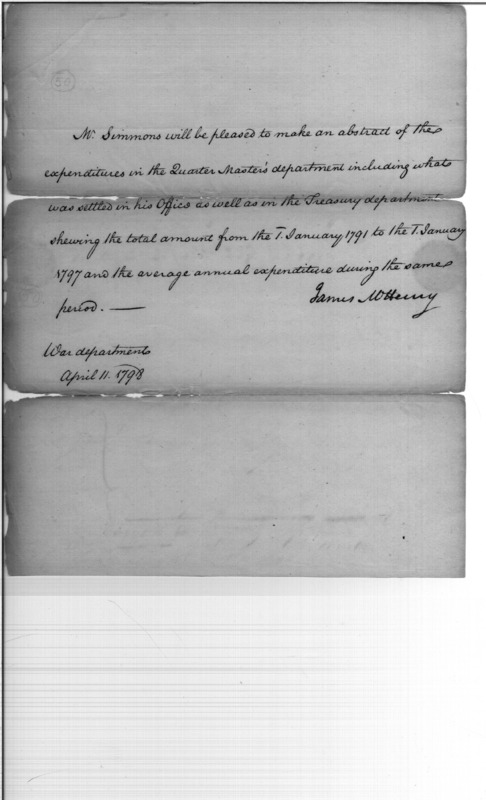 Mr. Simmons will be pleased to make an abstract of the
expenditures in the Quarter Master's department including what
was settled in his Office as well as in the Treasury department
shewing the total amount from the 1. January 1791 to the 1. January
1797 and the average annual expenditure during the same
period. —
James McHenry
War department
April 11. 1798